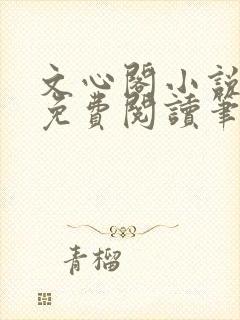 文心閣小說
免費閱讀筆
青榴